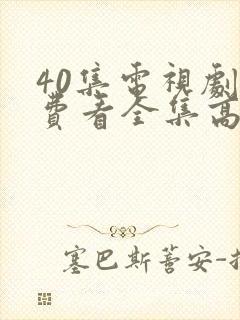 40集電視劇
費看全集高
塞巴斯蒈安-托